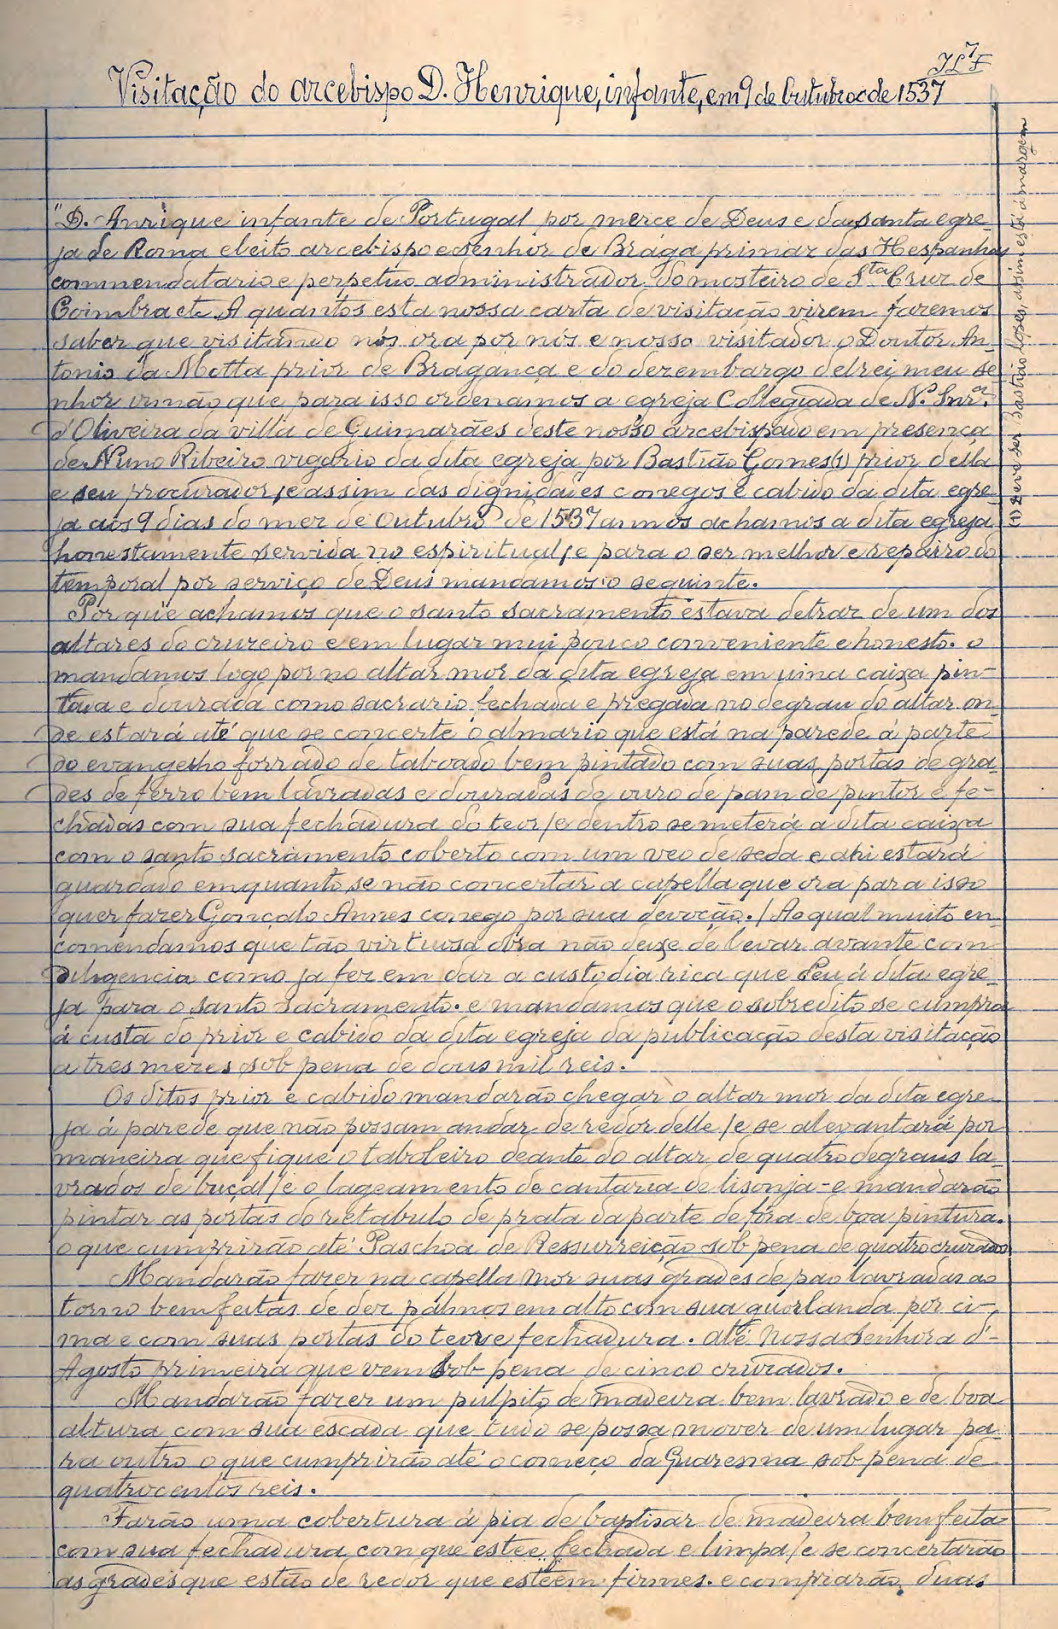 Visitação do arcebispo D. Henrique, infante, em 9 de Outubro de 1537
"D. Anrique infante de Portugal por merce de Deus e da santa egre-
ja de Roma eleito arcebispo e senhor de Braga primaz das Hespanhas
commendatario e perpetuo administrador do mosteiro de Sta Cruz de
Coimbra etc. A quantos esta nossa carta de visitação virem fazemos
saber que visitando nós ora por nós e nosso visitador o Doutor An-
tonio da Motta prior de Bragança e do dezembargo delrei meu se-
nhor irmão que para isso ordenamos a egreja Collegiada de N. Snrª.
d'Oliveira da villa de Guimarães deste nosso arcebispado em presença
de Nuno Ribeiro vigario da dita egreja por Bastião Gomes (1) prior della
e seu procurador / e assim das dignidades conegos e cabido da dita egre-
ja aos 9 dias do mez de Outubro de 1537 annos achamos a dita egreja
honestamente servida no espiritual / e para o ser melhor e repairo do
temporal por serviço de Deus mandamos o seguinte.
Por que achamos que o santo sacramento estava detraz de um dos
altares do cruzeiro e em lugar mui pouco conveniente e honesto. o
mandamos logo por no altar mor da dita egreja em uma caixa pin-
tada e dourada como sacrario, fechada e pregada no degrau do altar on-
de estará até que se concerte o almario que está na parede á parte
do evangelho forrado de taboado bem pintado com suas portas de gra-
des de ferro bem lavradas e douradas de ouro de pam de pintor e fe-
chadas com sua fechadura do teor / e dentro se meterá a dita caixa
com o santo sacramento coberto com um veo de seda e ahi estará
guardado emquanto se não concertar a capella que ora para isso
quer fazer Gonçalo Annes conego por sua devoção. / Ao qual muito en-
comendamos que tão virtuosa obra não deixe de levar avante com
diligencia como ja fez em dar a custodia rica que deu á dita egre-
ja para o santo sacramento. e mandamos que o sobredito se cumpra
á custa do prior e cabido da dita egreja da publicação desta visitação
a tres mezes sob pena de dous mil reis.
Os ditos prior e cabido mandarão chegar o altar mor da dita egre-
ja á parede que não possam andar de redor delle / e se alevantará por
maneira que fique o taboleiro deante do altar de quatro degraus la-
vrados de buçal / e o lageamento de cantaria de lisonja - e mandarão
pintar as portas do retabulo de prata da parte de fora de boa pintura.
o que cumprirão até Paschoa de Ressurreição sob pena de quatro cruzados
Mandarão fazer na capella mor suas grades de pao lavradas ao
torno bem feitas de dez palmos em alto com sua guorlanda por ci-
ma e com suas portas do teor e fechadura. até Nossa Senhora d'-
Agosto primeira que vem sob pena de cinco cruzados.
Mandarão fazer um pulpito de madeira bem lavrado e de boa
altura com sua escada que tudo se possa mover de um lugar pa-
ra outro o que cumprirão até o começo da Quaresma sob pena de
quatrocentos reis.
Farão uma cobertura á pia de baptisar de madeira bem feita
com sua fechadura com que esteê fechada e limpa / e se concertarão
as grades que estão de redor que esteêm firmes. e comprarão duas
(1) Deve ser Bastião Lopes, assim está á margem